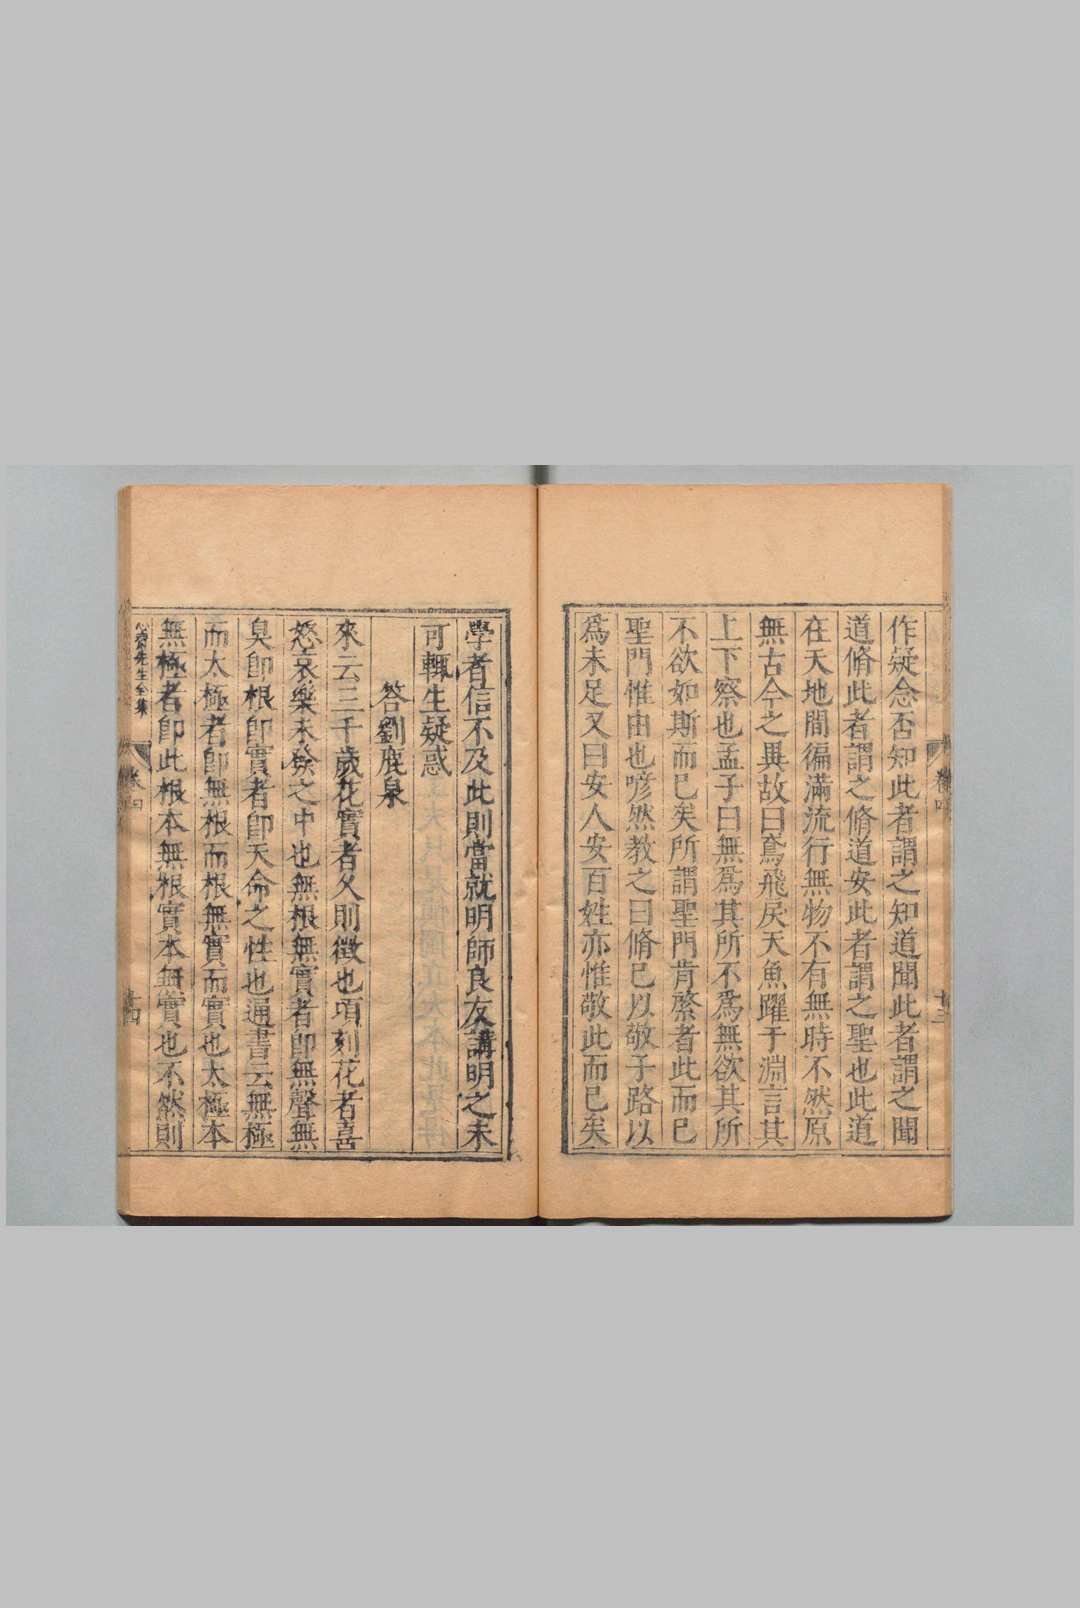 作疑念否知此者謂之知道聞此者謂之聞
道脩此者謂之脩道安此者謂之聖也此道
在天地間徧滿流行無物不有無時不然原
無古今之異故曰鳶飛戾天魚躍于淵言其
上下察也孟子曰無爲其所不爲無欲其所
不欲如斯而已矣所謂聖門肯綮者此而已
聖門惟由也喭然教之曰脩己以敬子路以
爲未足又曰安人安百姓亦惟敬此而已矣
卷四
十三
學者信不及此則當就明師良友講明之未
可輒生疑惑
答劉鹿泉
來云三千歲花實者久則徵也頃刻花者喜
怒哀樂未發之中也無根無實者卽無聲無
臭卽根卽實者卽天命之性也通書云無極
而太極者卽無根而根無實而實也太極本
無極者卽此根本無根實本無實也不然則
心齋先生全集
卷四
十四